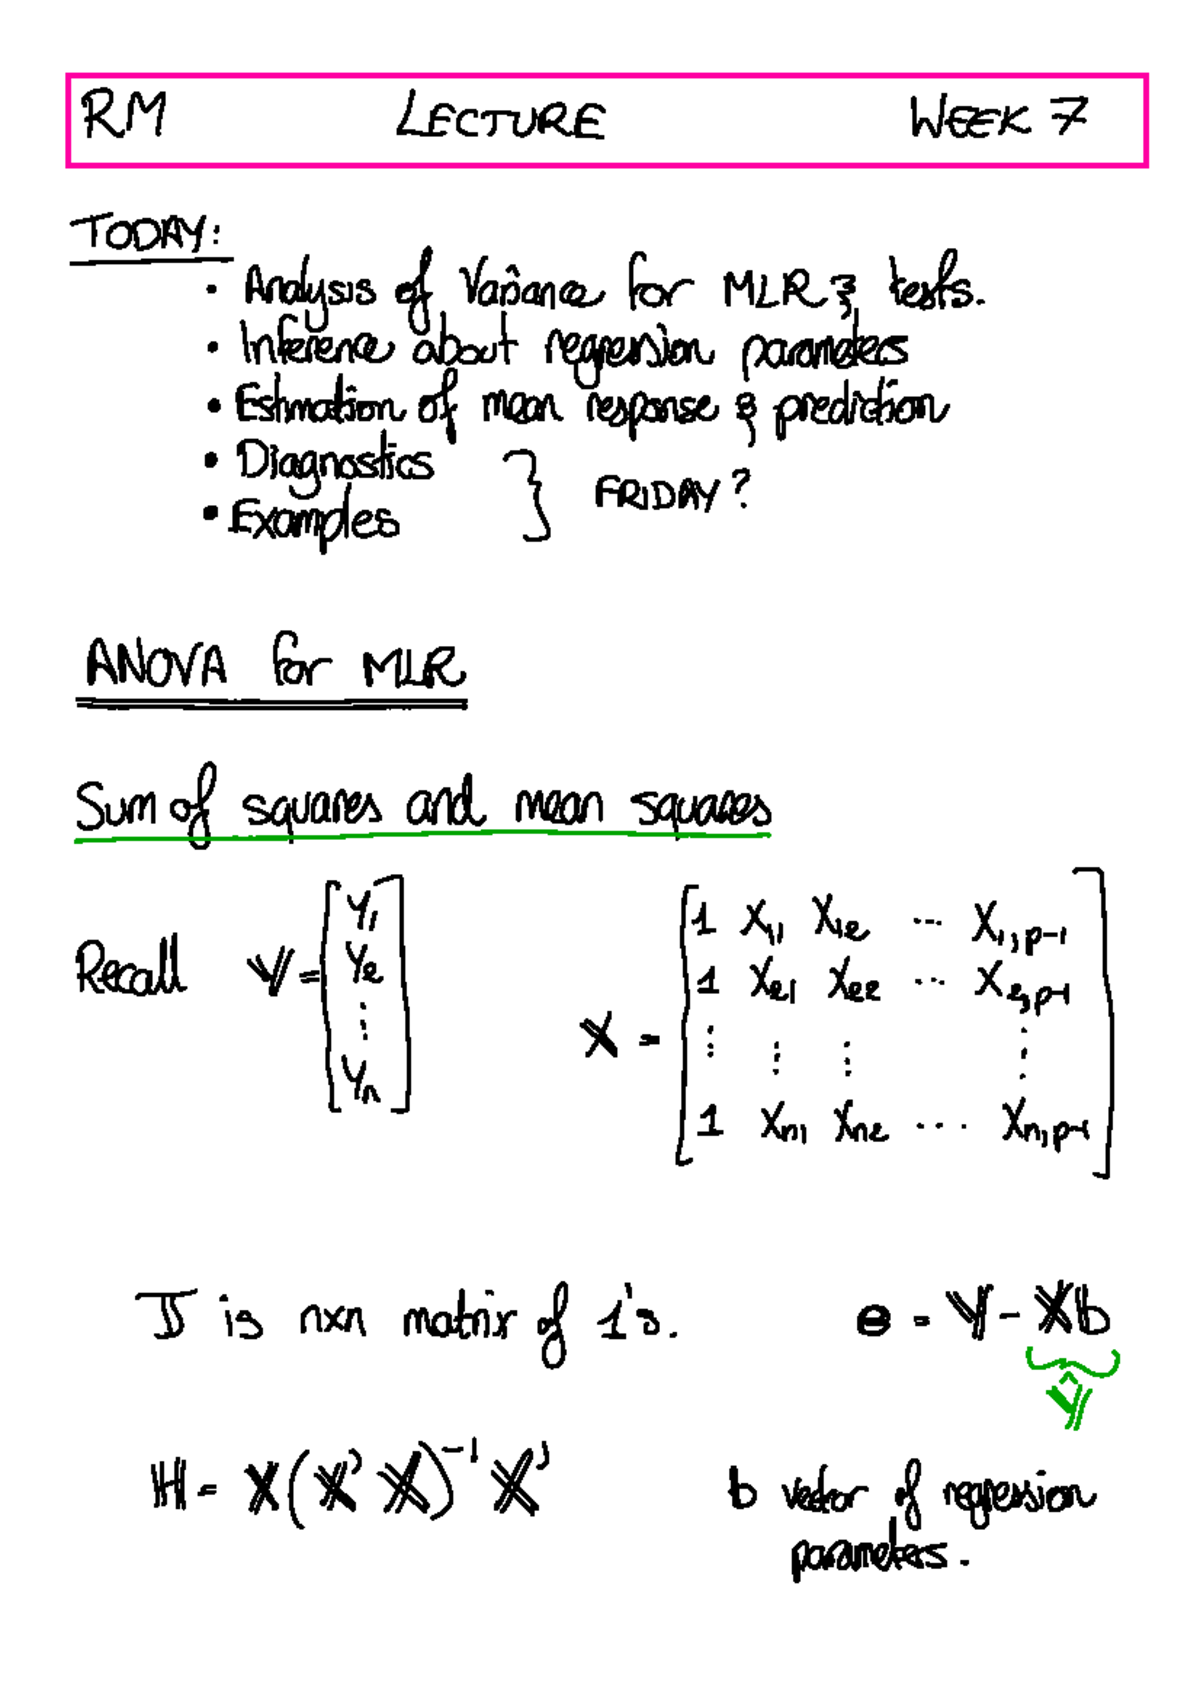 RM LECTURE WEEK 7
TODAY:
• Analysis of Variance for MLR & tests.
• Inference about regression parameters
• Estimation of mean response & prediction
• Diagnostics
• Examples } FRIDAY?
ANOVA for MLR
Sum of squares and mean squares
Recall 𝕐 = [Y₁ Y₂ ⋮ Yₙ]
𝕏 =
[1 X₁₁ X₁₂ ... X₁,p-1
1 X₂₁ X₂₂ ... X₂,p-1
⋮ ⋮ ⋮ ⋮
1 Xn1 Xn2 ... Xn,p-1]
𝕁 is n×n matrix of 1's. e = 𝕐 - 𝕏b
𝕐̂
ℍ = 𝕏(𝕏' 𝕏)⁻¹ 𝕏' b vector of regression
parameters.